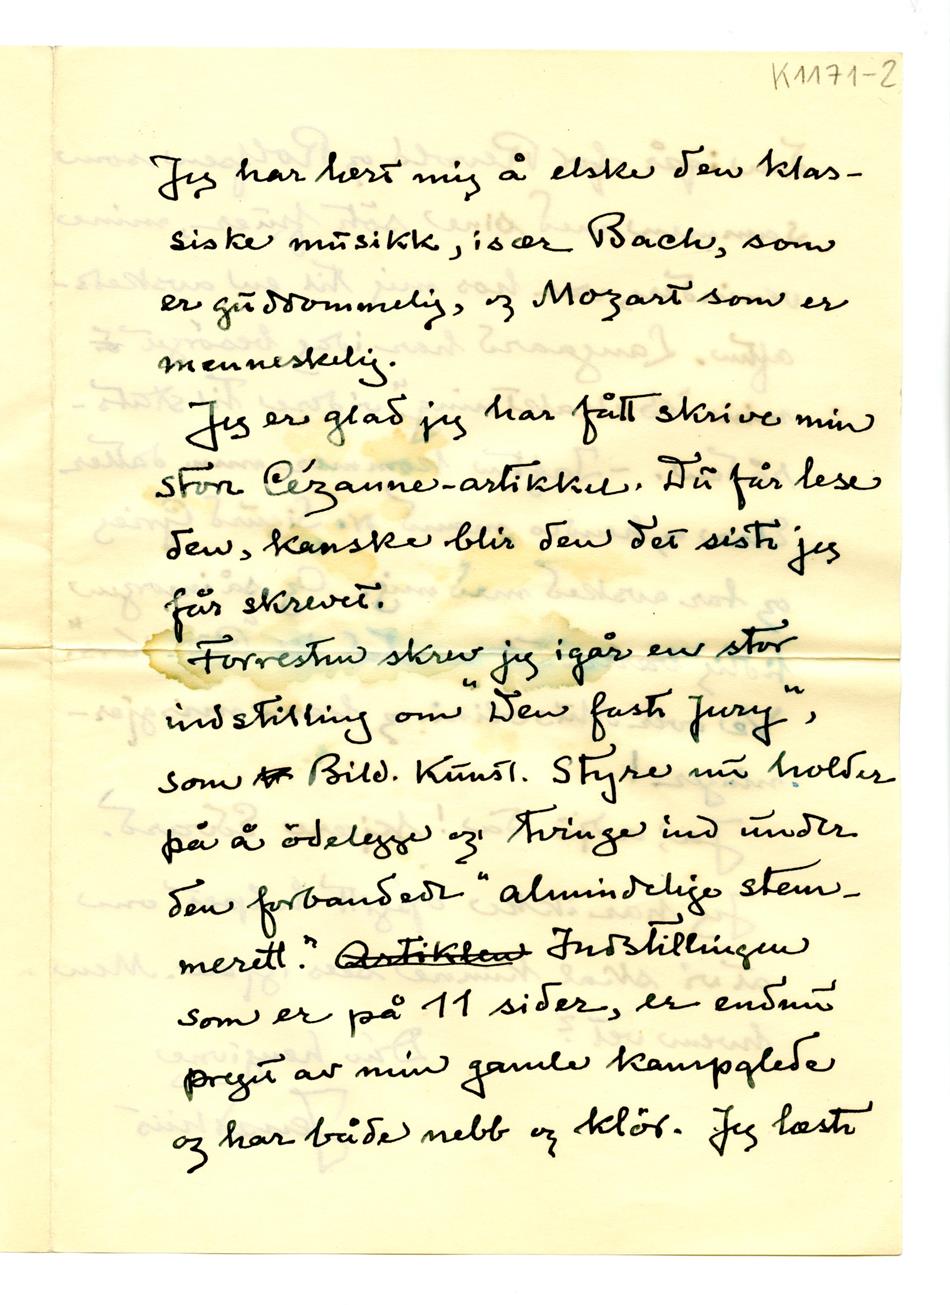 K1171-2
Jeg har lært mig å elske den klas-
siske musikk, især Bach, som
er guddommelig, og Mozart som er
menneskelig.
Jeg er glad jeg har fått skrive min
store Cézanne-artikkel. Du får lese
den, kanske blir den det siste jeg
får skrevet.
Forresten skrev jeg igår en stor
indstilling om "Den faste Jury",
som Bild. Kunst. Styre nu holder
på å ödelegge og tvinge ind under
den forbandede "almindelige stem-
merett." Artiklen Indstillingen
som er på 11 sider, er endnu
preget av min gamle kampglede
og har både nebb og klör. Jeg læste